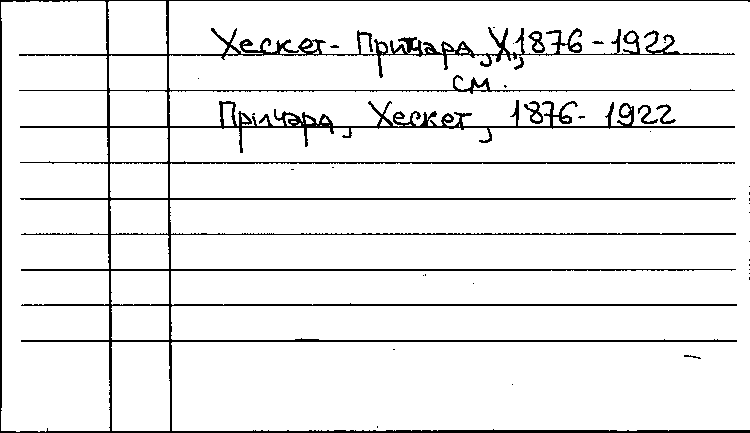 Хескет-Притчард, Х., 1876-1922
см.
Прічард, Хескет, 1876-1922